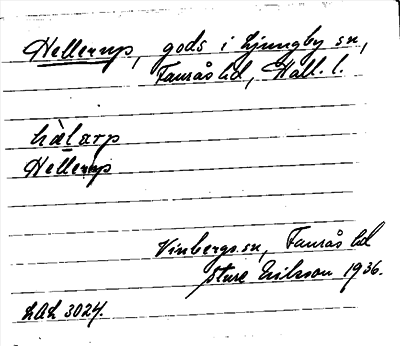 Hellerup, gods i Ljungby sn,
Faurås hd, Hall. l.
hälarp
Hellerup
Vinbergs sn, Faurås hd
Sture Erikson 1936.
LAL 3024.